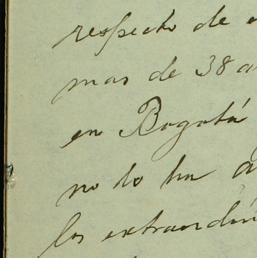 respecto de
mas de 38 a
en Bogotá
no lo ha
los extraordin